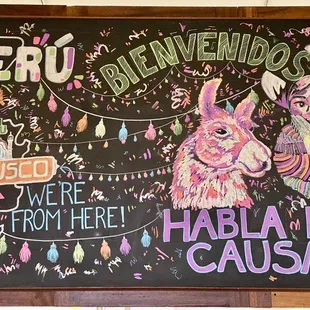 ERÚ
BIENVENIDOS
USCO
WE'RE
FROM HERE!
HABLA
CAUSA